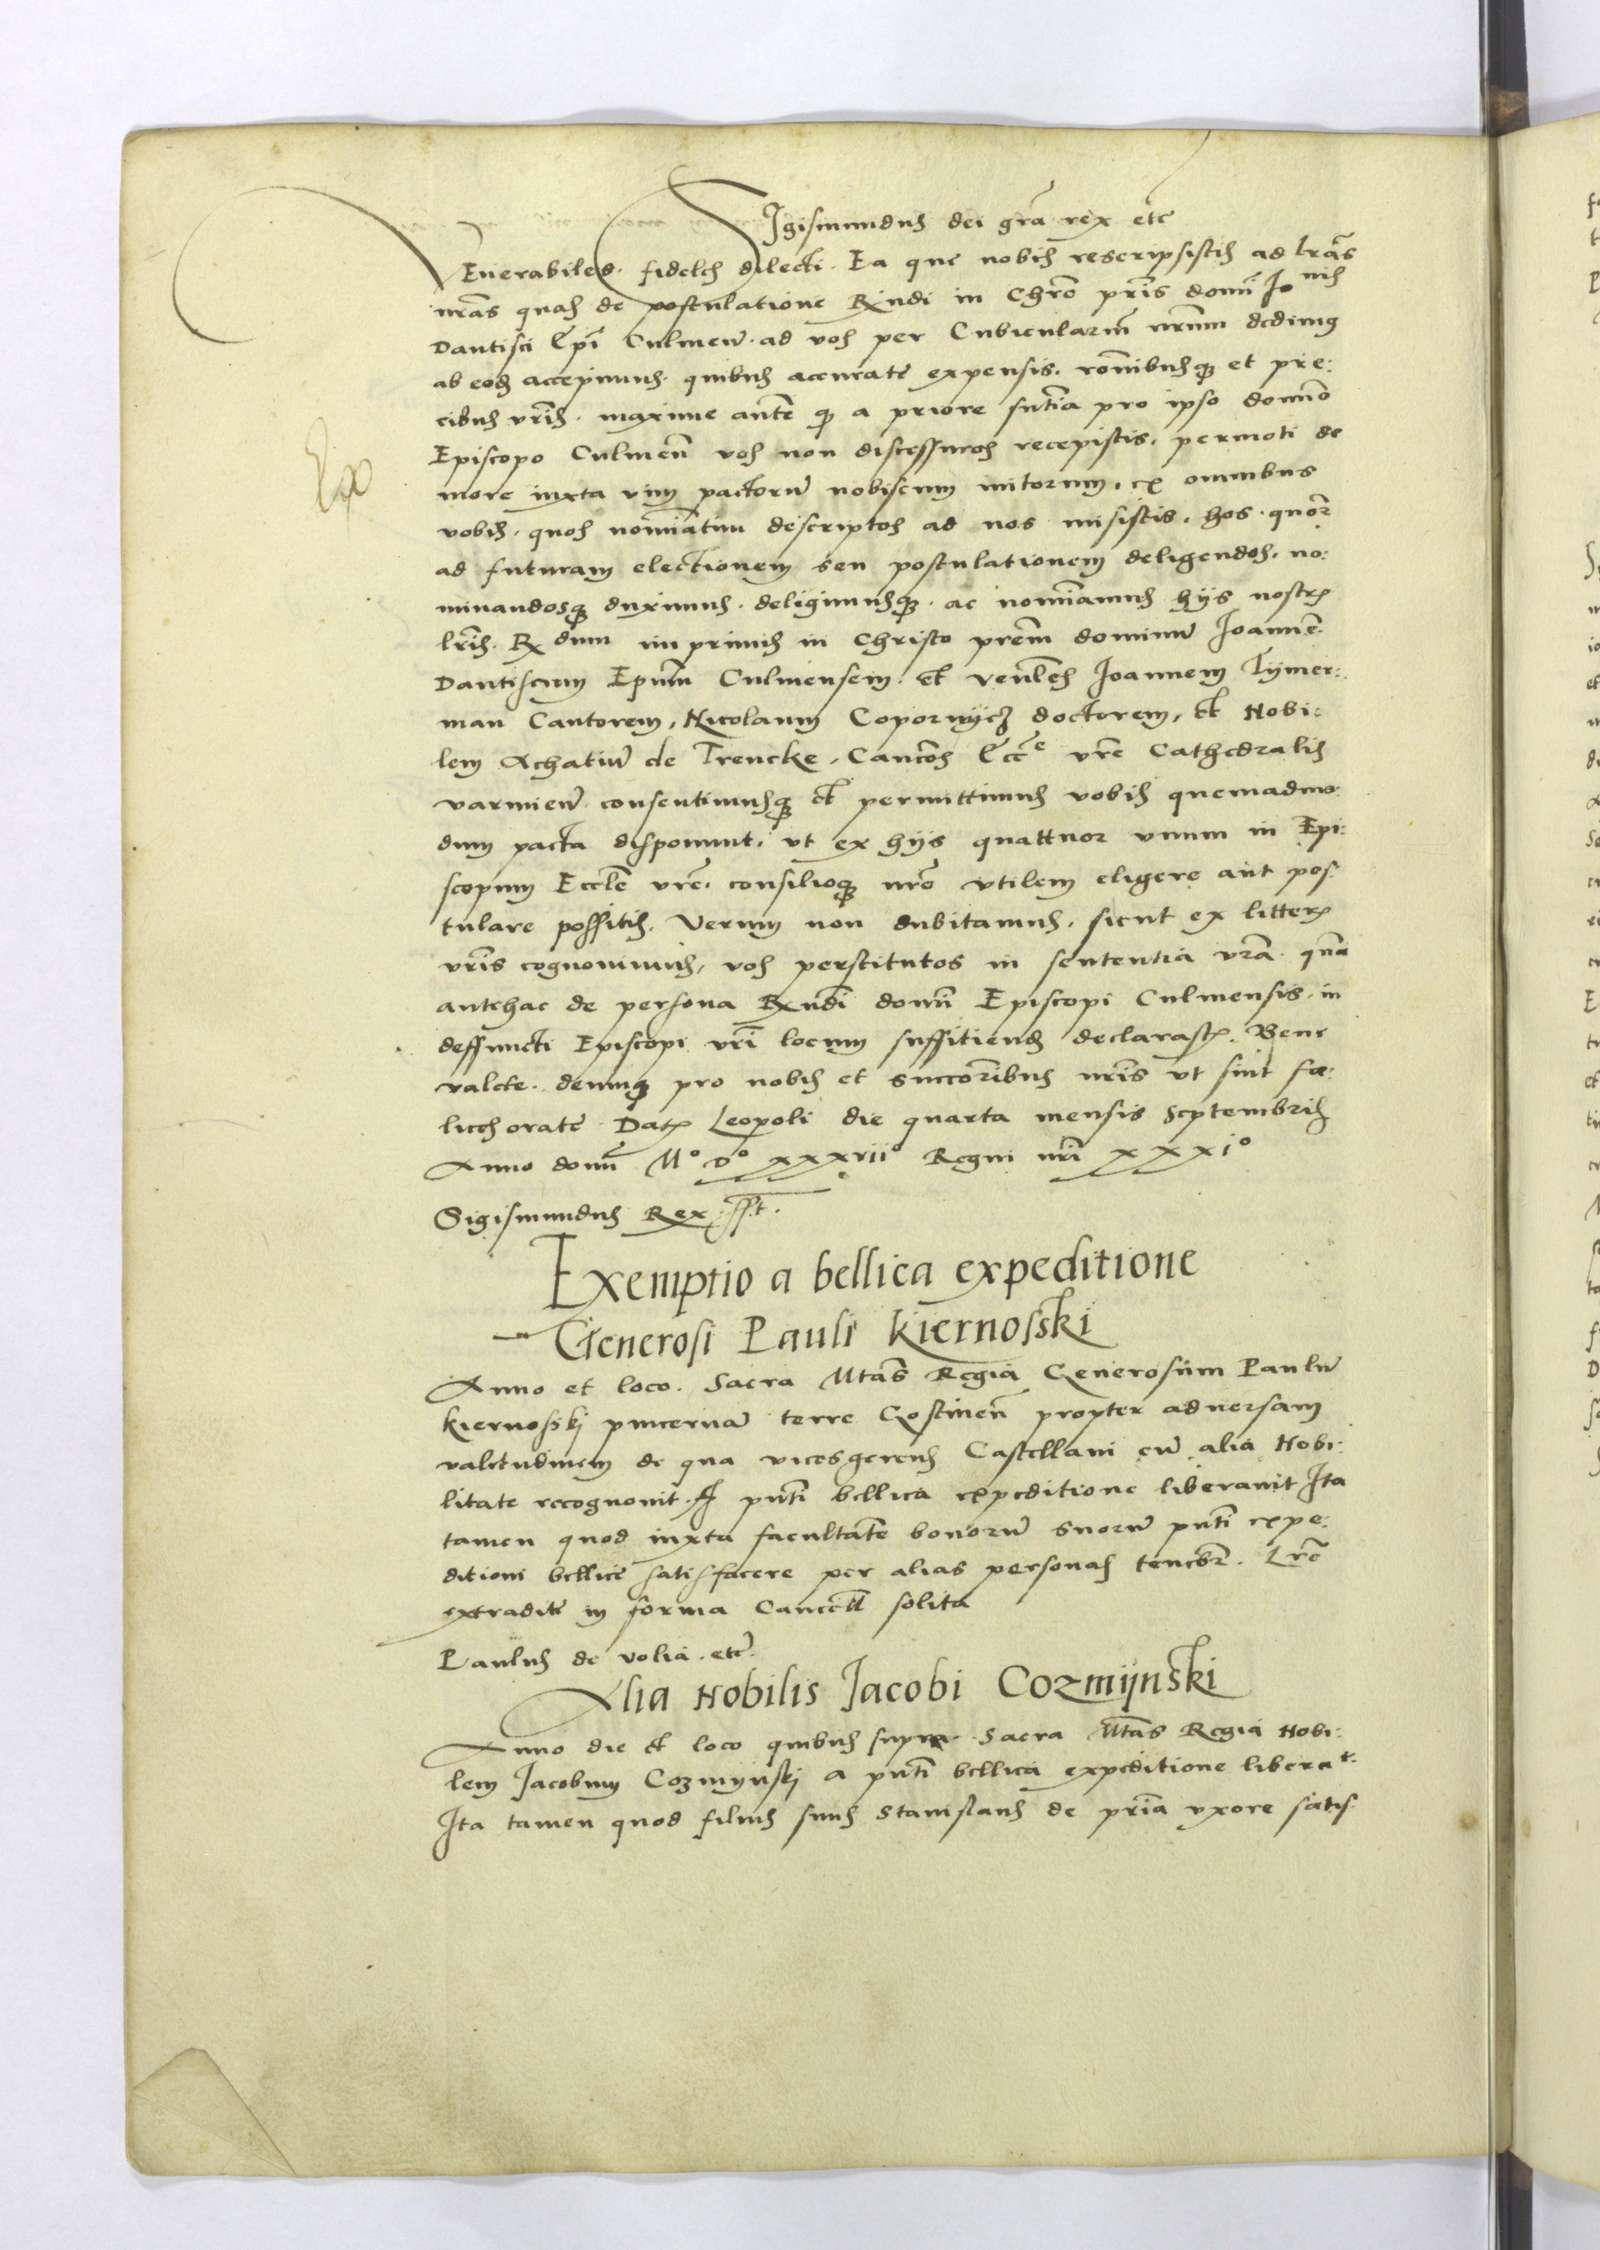 Sigismundus dei gra rex etc
Venerabiles. fideles dilecti. Ea que nobis rescripsistis ad lras
nras quas de postulatione Rndi in Chro pris domi Jo nis
Dantisci Epi Culmen. ad vos per Cubicularm nrum dedimus
ab eodem accepimus. quibus accurate expensis. ronibusque et pre:
cibus vris. maxime autem quod a priore sntia pro ipso domno
Episcopo Culmen vos non discessuros recepistis. permoti de
Ex
more iuxta vim pactoru nobiscum initorum, ex omnibus
vobis. quos nominatim descriptos ad nos misistis. hos. quor
ad futuram electionem seu postulationem deligendos. no:
minandosque duximus. deligimusque. ac nominamus hijs nostris
lris. R dum imprimis in Christo prem dominum Joanne.
Dantiscum Epum Culmensem. et venles Joannem Tymer:
man Cantorem, Nicolaum Copornijcz doctorem, et Nobi:
lem Achatium de Trencke. Cancos Ecce vre Cathedralis
varmien consentimusque et permittimus vobis quemadmo:
dum pacta disponunt, vt ex hijs quattuor vnum in Epi:
scopum Eccle vre. consilioque nro vtilem eligere aut pos:
tulare possitis. Verum non dubitamus. sicut ex litteris
vris cognovimus, vos perstitutos in sententia vra. qua
antehac de persona Rndi domi Episcopi Culmensis. in
deffuncti Episcopi vri locum suffitiend declarastis. Bene
valete. deumque pro nobis et succoribus nris vt sint fæ:
lices orate Datum Leopoli die quarta mensis Septembris
Anno domi M° D° xxxvii° Regni nri xxxi°
Sigismundus Rex sst.
Exemptio a bellica expeditione
Generosi Pauli Kiernosski
Anno et loco. Sacra Mtas Regia Generosum Paulu
kiernosski pincernam terre Gostinen propter adversam
valetudinem de qua vicesgerens Castellani cu alia Nobi:
litate recognovit. A pnti bellica expeditione liberavit Ita
tamen quod iuxta facultate bonoru suoru pnti expe:
ditioni bellice satisfacere per alias personas tenebr. Lre
extradite in forma Cancell solita
Paulus de volia. etc.
Alia Nobilis Jacobi Cozmijnski
Anno die et loco quibus supra Sacra Mtas Regia Nobi:
lem Jacobum Cozmijnski a pnti bellica expeditione liberat.
Ita tamen quod filius suus Stanislaus de pria vxore satis